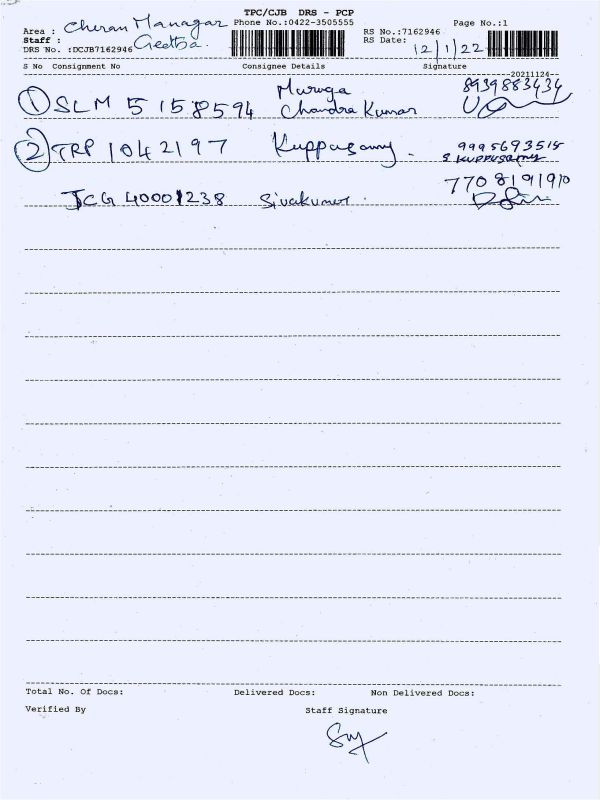 TPC/CJB DRS - PCP
Area : Cheran Managar Phone No.:0422-3505555 RS No.:7162946 Page No.:1
Staff : Geetha. RS Date: 12/1/22
DRS No. :DCJB7162946
S No Consignment No Consignee Details Signature
-20211124--
1 SLM 5158594 Muruga Chandra Kumar 8939883434
2 TRP 1042197 Kuppusamy. 9995693515
S. Kuppusamy
JCG 40001238 Sivakumar. 7708191910
Total No. Of Docs: Delivered Docs: Non Delivered Docs:
Verified By Staff Signature